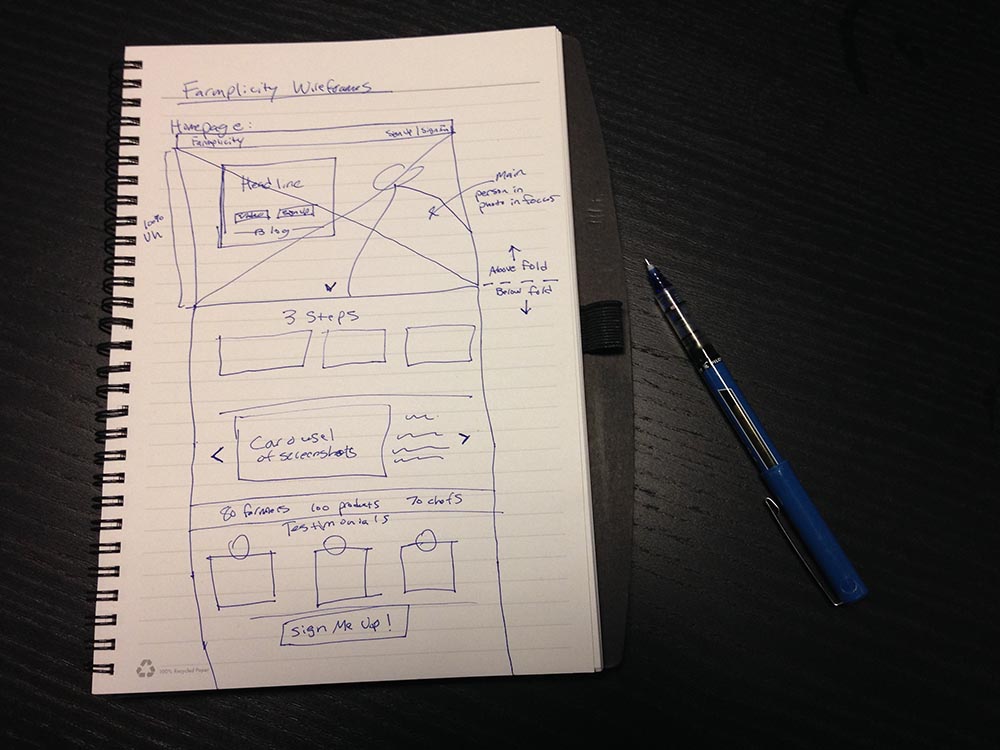 Farmplicity Wireframes
Homepage:
Farmplicity
Sign up / Sign in
Headline
Video
Sign up
Blog
100%
Vh
Main
person in
photo in focus
Above fold
Below fold
3 Steps
Carousel
of screenshots
80 farmers 100 products 70 chefs
Testimonials
Sign Me Up!
100% Recycled Paper